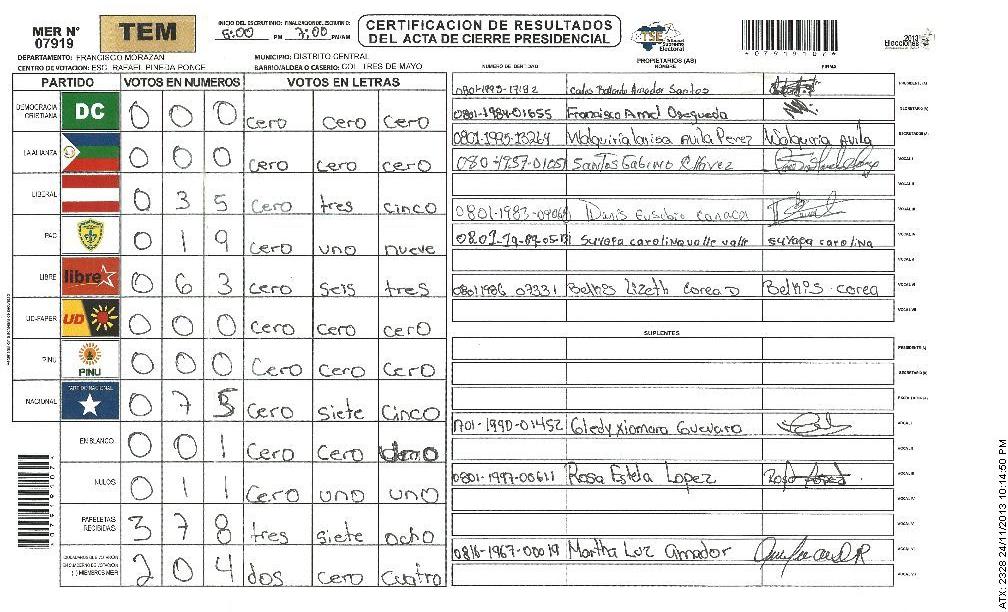 MER N° 07919
TEM
INICIO DEL ESCRUTINIO: 5:00 PM FINALIZACION DEL ESCRUTINIO: 7:00 PM/AM
CERTIFICACION DE RESULTADOS
DEL ACTA DE CIERRE PRESIDENCIAL
TSE Tribunal Supremo Electoral
*07919107*
2013 Elecciones
DEPARTAMENTO: FRANCISCO MORAZAN MUNICIPIO: DISTRITO CENTRAL
CENTRO DE VOTACION: ESC. RAFAEL PINEDA PONCE BARRIO/ALDEA O CASERIO: COL. TRES DE MAYO
PARTIDO VOTOS EN NUMEROS VOTOS EN LETRAS
DEMOCRACIA CRISTIANA DC 0 0 0 Cero Cero Cero
LA ALIANZA 0 0 0 Cero Cero Cero
LIBERAL 0 3 5 Cero tres cinco
PAC 0 1 9 Cero uno nueve
LIBRE libre 0 6 3 Cero seis tres
UD-FAPER UD 0 0 0 Cero Cero Cero
PINU PINU 0 0 0 Cero Cero Cero
NACIONAL PARTIDO NACIONAL 0 7 5 Cero siete Cinco
EN BLANCO 0 0 1 Cero Cero
NULOS 0 1 1 Cero uno uno
PAPELETAS RECIBIDAS 3 7 8 tres siete ocho
CIUDADANOS QUE VOTARON 2 0 4 dos cero cuatro
PROPIETARIOS (AS)
NUMERO DE IDENTIDAD NOMBRE FIRMA
Amador Santos PRESIDENTE (A)
0801-1984-01655 Francisco SECRETARIO (A)
0801-1995-13264 Walquiria Avila Perez Walquiria Avila
Santos Gabino VOCAL I
VOCAL II
0801-1983 Danis Eusebio VOCAL III
suyapa carolina valle valle suyapa carolina VOCAL IV
VOCAL V
0801 1986 07331 Belkis Lizeth Corea D Belkis Corea VOCAL VI
VOCAL VII
SUPLENTES
PRESIDENTE (A)
SECRETARIO (A)
1701-1990-01452 Gledy Xiomara Guevara VOCAL I
VOCAL II
0801-1997-00611 Rosa Estela Lopez Rosa Lopez VOCAL III
VOCAL IV
VOCAL V
0816-1967-00019 Martha Luz Amador VOCAL VI
VOCAL VII
*07919107*
ATX: 2328 24/11/2013 10:14:50 PM